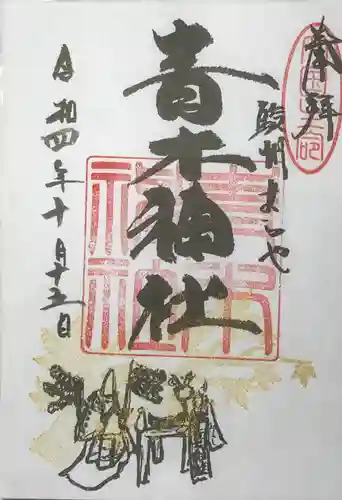 奉拝
駿州
青木神社
令和四年十月十五日
青木神社